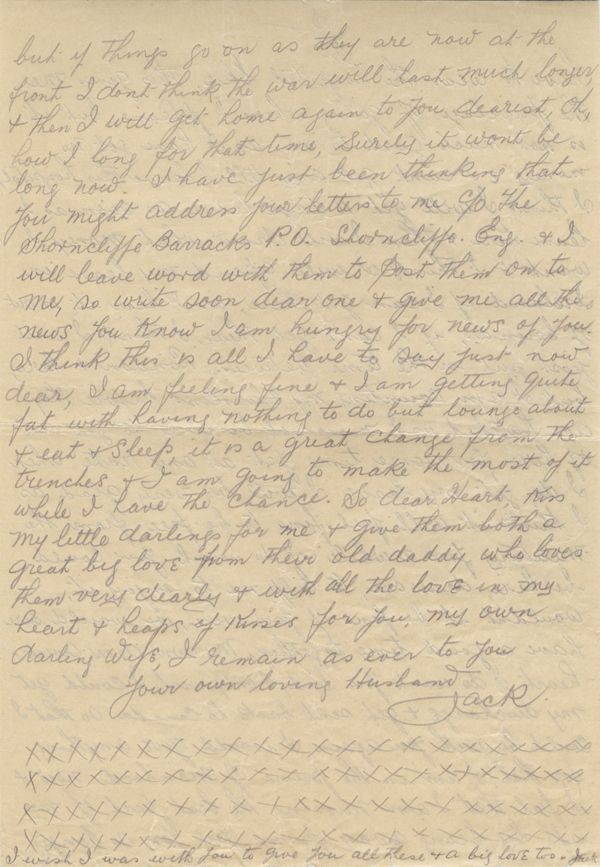 but if things go on as they are now at the
front I dont think the war will last much longer,
& then I will get home again to you dearest, Oh,
how I long for that time, Surely it wont be
long now. I have just been thinking that
you might address your letters to me c/o The
Shorncliffe Barracks P.O. Shorncliffe. Eng. & I
will leave word with them to Post them on to
me, so write soon dear one & give me all the
news you know I am hungry for news of you.
I think this is all I have to say just now
dear, I am feeling fine & I am getting quite
fat with having nothing to do but lounge about
& eat & sleep, it is a great change from the
trenches & I am going to make the most of it
while I have the chance. So dear Heart, Kiss
my little darlings for me & give them both a
great big love from their old daddy who loves
them very dearly & with all the love in my
heart & heaps of Kisses for you, my own
darling Wife, I remain as ever to you
Your own loving Husband
Jack.
XXXXXXXXXXXXXXXXXXXXXXXX
XXXXXXXXXXXXXXXXXXXXXXXX
XXXXXXXXXXXXXXXXXXXXXXX
XXXXXXXXXXXXXXXXXXXXXXX
I wish I was with you to give you all these & a big love too. Jack